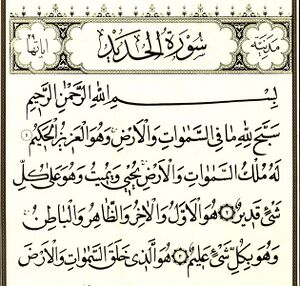 مدنية سورة الحديد آياتها ٢٩
بِسْمِ اللهِ الرَّحْمٰنِ الرَّحِيمِ
سَبَّحَ لِلّٰهِ مَا فِي السَّمٰوَاتِ وَالْاَرْضِ وَهُوَ الْعَزِيزُ الْحَكِيمُ ١
لَهُ مُلْكُ السَّمٰوَاتِ وَالْاَرْضِ يُحْيِي وَيُمِيتُ وَهُوَ عَلٰى كُلِّ
شَيْءٍ قَدِيرٌ ٢ هُوَ الْاَوَّلُ وَالْاٰخِرُ وَالظَّاهِرُ وَالْبَاطِنُ
وَهُوَ بِكُلِّ شَيْءٍ عَلِيمٌ ٣ هُوَ الَّذِي خَلَقَ السَّمٰوَاتِ وَالْاَرْضَ